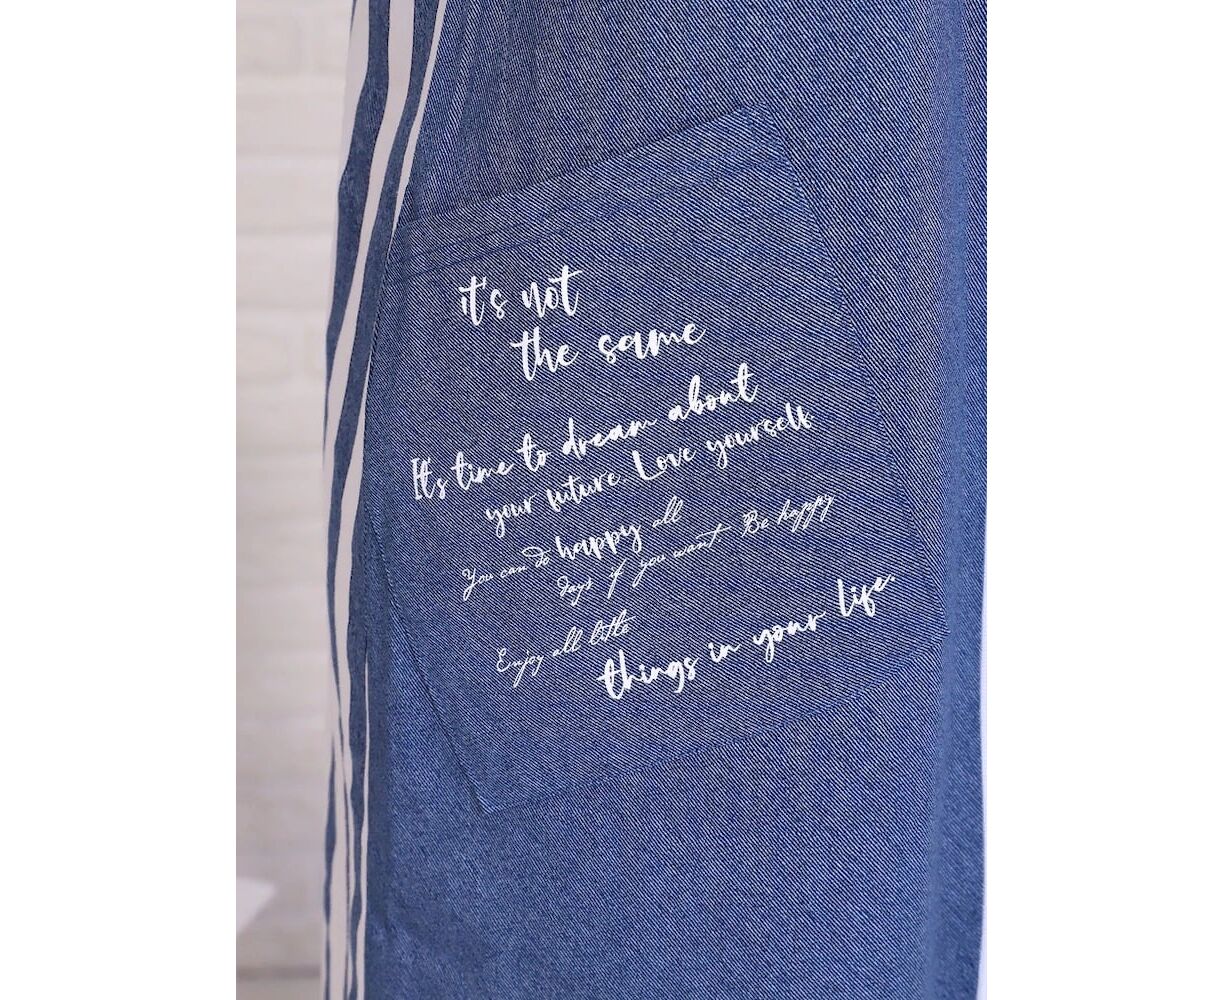 it's not
the same
It's time to dream about
your outure. Love yourself.
You can do happy all
days if you want Be happy
Enjoy all little
things in your life.